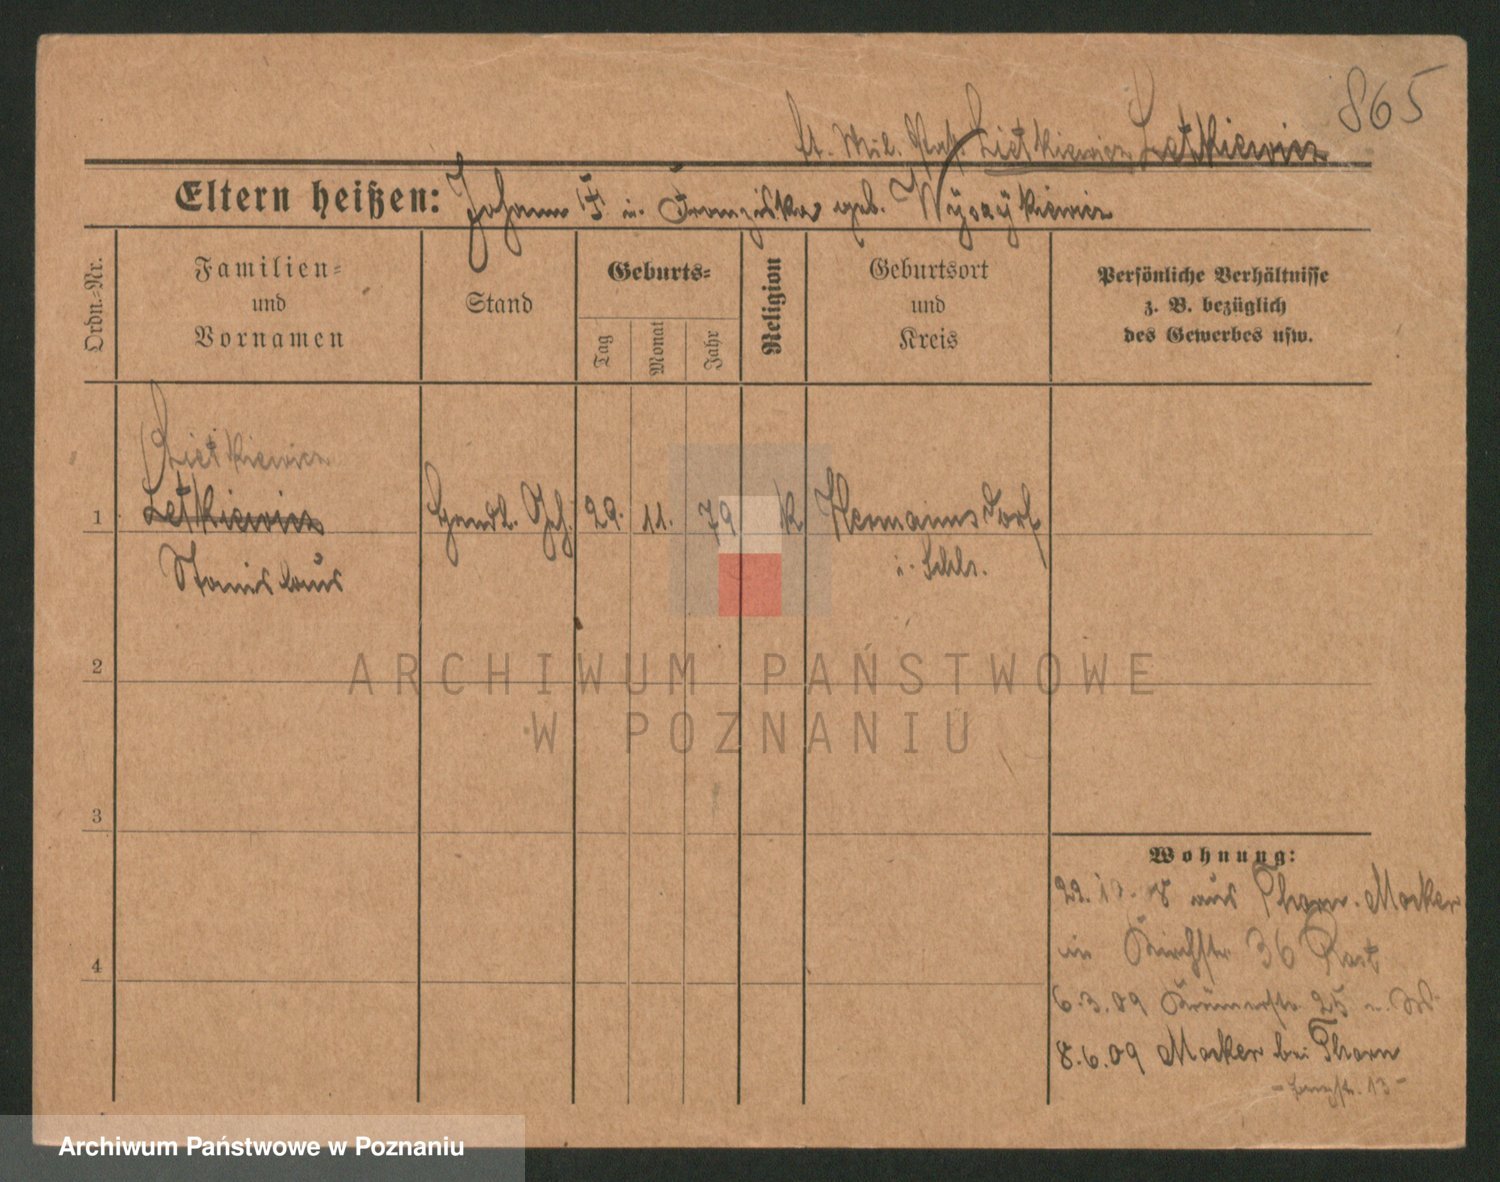 865
lt. Mil. Paß. Lietkiewicz Letkiewicz
Eltern heißen: Johann u. Franziska geb. Wyszykiewicz
Ordn.-Nr.
Familien- und Vornamen
Stand
Geburts-
Tag
Monat
Jahr
Religion
Geburtsort und Kreis
Persönliche Verhältnisse
z. B. bezüglich
des Gewerbes usw.
Lietkiewicz
1 Letkiewicz Handl. Geh. 29. 11. 79 K Hermannsdorf
Stanislaus
2
3
4
Wohnung:
aus Thorn. Mocker
in Kirchstr 36
6.3.09 Krämerstr. 25
8.6.09 Mocker bei Thorn
13
ARCHIWUM PAŃSTWOWE
W POZNANIU
Archiwum Państwowe w Poznaniu